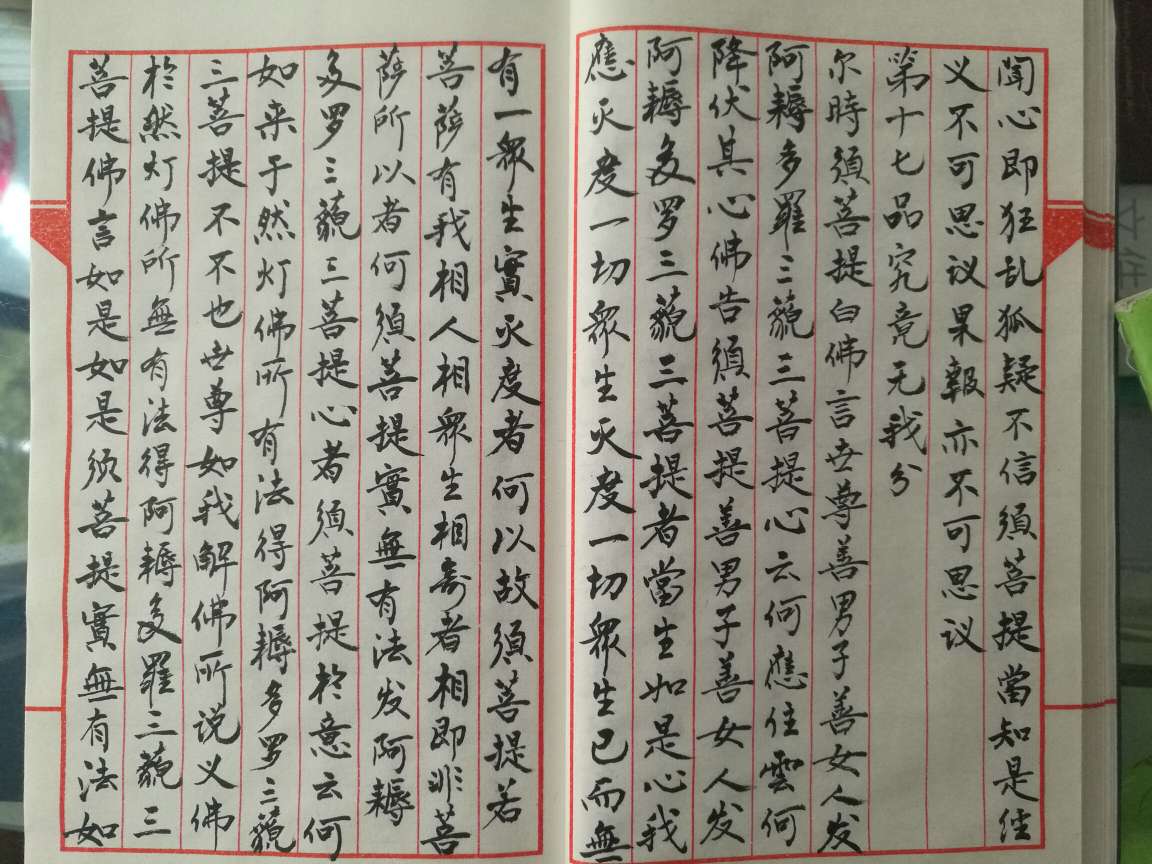 聞心即狂乱狐疑不信須菩提當知是经
义不可思议果報亦不可思议
第十七品究竟无我分
尔時须菩提白佛言世尊善男子善女人发
阿耨多羅三藐三菩提心云何應住雲何
降伏其心佛告須菩提善男子善女人发
阿耨多罗三藐三菩提者當生如是心我
應灭度一切眾生灭度一切眾生已而無
有一眾生實灭度者何以故須菩提若
菩薩有我相人相眾生相寿者相即非菩
薩所以者何須菩提實無有法发阿耨
多罗三藐三菩提心者須菩提於意云何
如来于然灯佛所有法得阿耨多罗三藐
三菩提不不也世尊如我解佛所说义佛
於然灯佛所無有法得阿耨多羅三藐三
菩提佛言如是如是须菩提實無有法如